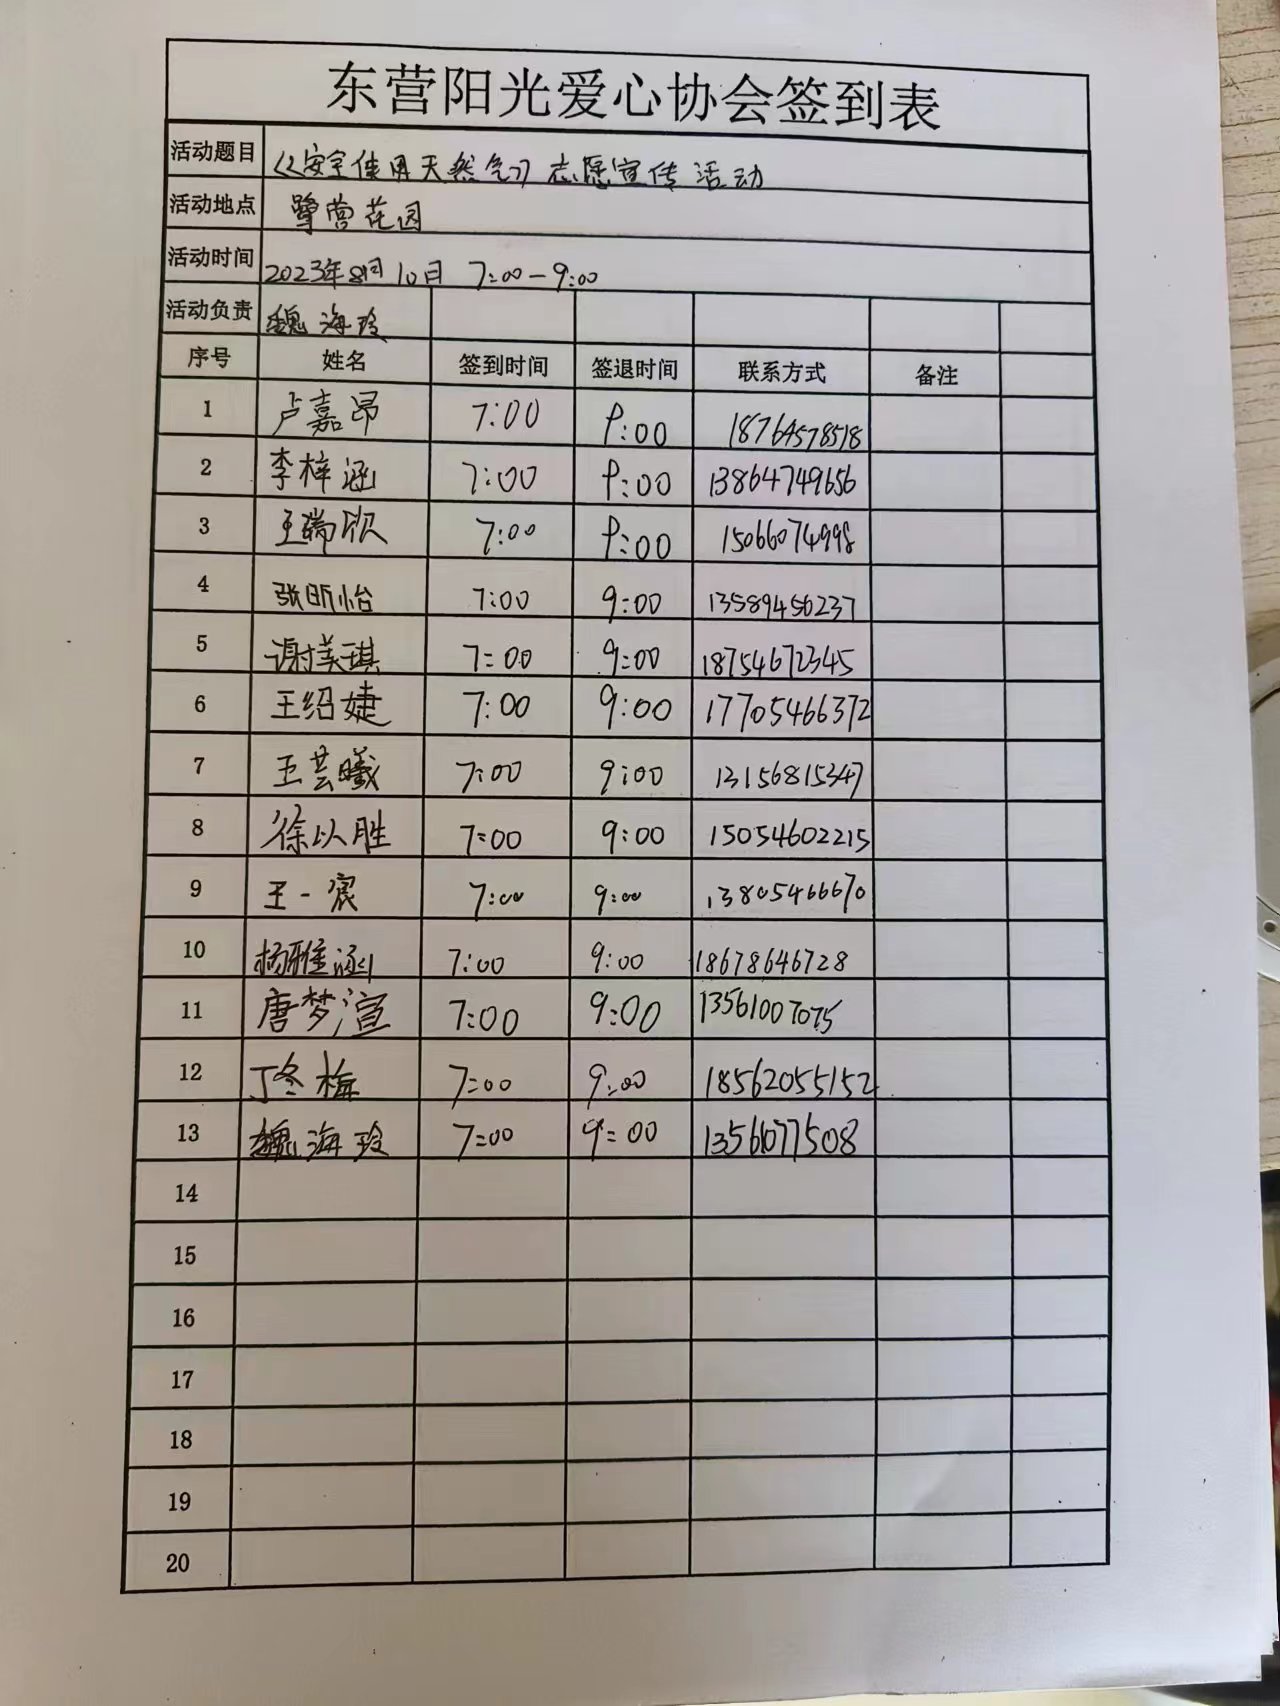 东营阳光爱心协会签到表
活动题目 《安全使用天然气》志愿宣传活动
活动地点 鹭营花园
活动时间 2023年8月10日 7:00-9:00
活动负责 魏海玲
序号 姓名 签到时间 签退时间 联系方式 备注
1 卢嘉昂 7:00 9:00 18764578518
2 李梓涵 7:00 9:00 13864749656
3 王瑞欣 7:00 9:00 15066074998
4 张昕怡 7:00 9:00 13589456237
5 谢美琪 7:00 9:00 18754672345
6 王绍婕 7:00 9:00 17705466372
7 王芸曦 7:00 9:00 13156815347
8 徐以胜 7:00 9:00 15054602215
9 王一宸 7:00 9:00 13805466670
10 杨雅涵 7:00 9:00 18678646728
11 唐梦渲 7:00 9:00 13561007075
12 丁冬梅 7:00 9:00 18562055152
13 魏海玲 7:00 9:00 13561077508
14
15
16
17
18
19
20